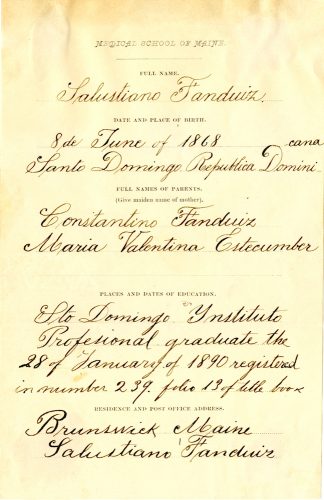 MEDICAL SCHOOL OF MAINE.
FULL NAME.
Salustiano Fanduiz.
DATE AND PLACE OF BIRTH.
8 de June of 1868
Santo Domingo Republica Domini
cana
FULL NAMES OF PARENTS,
(Give maiden name of mother).
Constantino Fanduiz
Maria Valentina Estecumber
PLACES AND DATES OF EDUCATION.
Sto Domingo Ynstituto
Profesional graduate the
28 of January of 1890 registered
in number 239. folio 13 of title book
RESIDENCE AND POST OFFICE ADDRESS.
Brunswick Maine
Salustiano Fanduiz